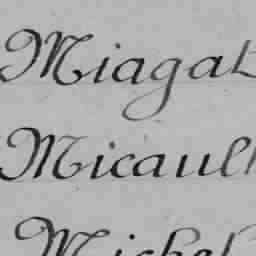 Miagat
Micault
Michel